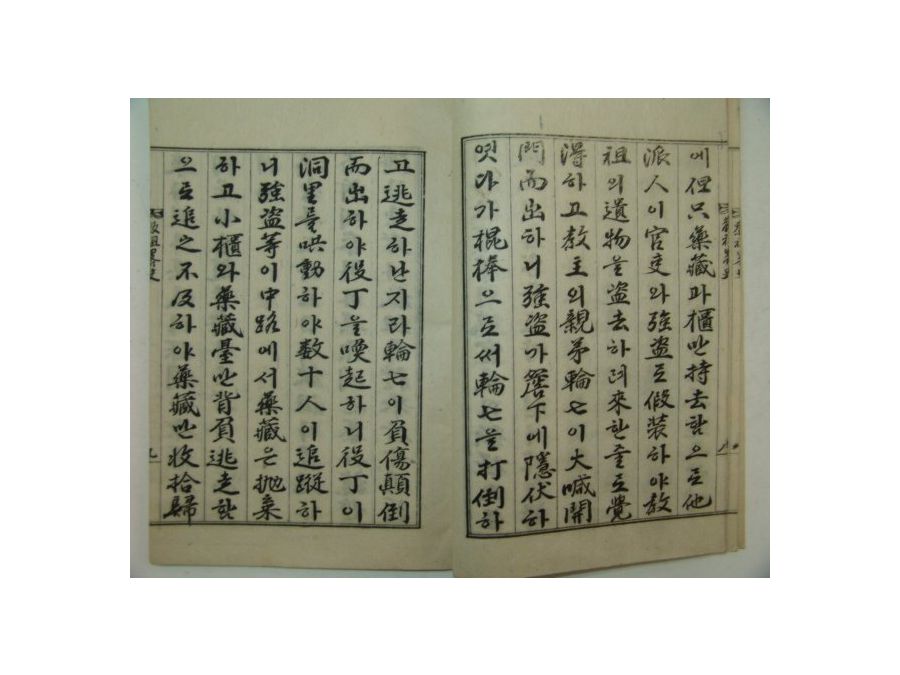 에但只藥藏과櫃만持去함으로他
派人이官吏와强盜로假装하야敎
祖의遺物을盜去하려來한줄로覺
得하고敎主의親弟輪七이大喊開
門而出하니强盜가簷下에隱伏하
엿다가棍棒으로써輪七을打倒하
고逃走하난지라輪七이負傷顚倒
而出하야役丁을喚起하니役丁이
洞里를哄動하야数十人이追蹤하
니强盜等이中路에서藥藏은抛棄
하고小櫃와藥藏臺만背負逃走함
으로追之不及하야藥藏만收拾歸
九